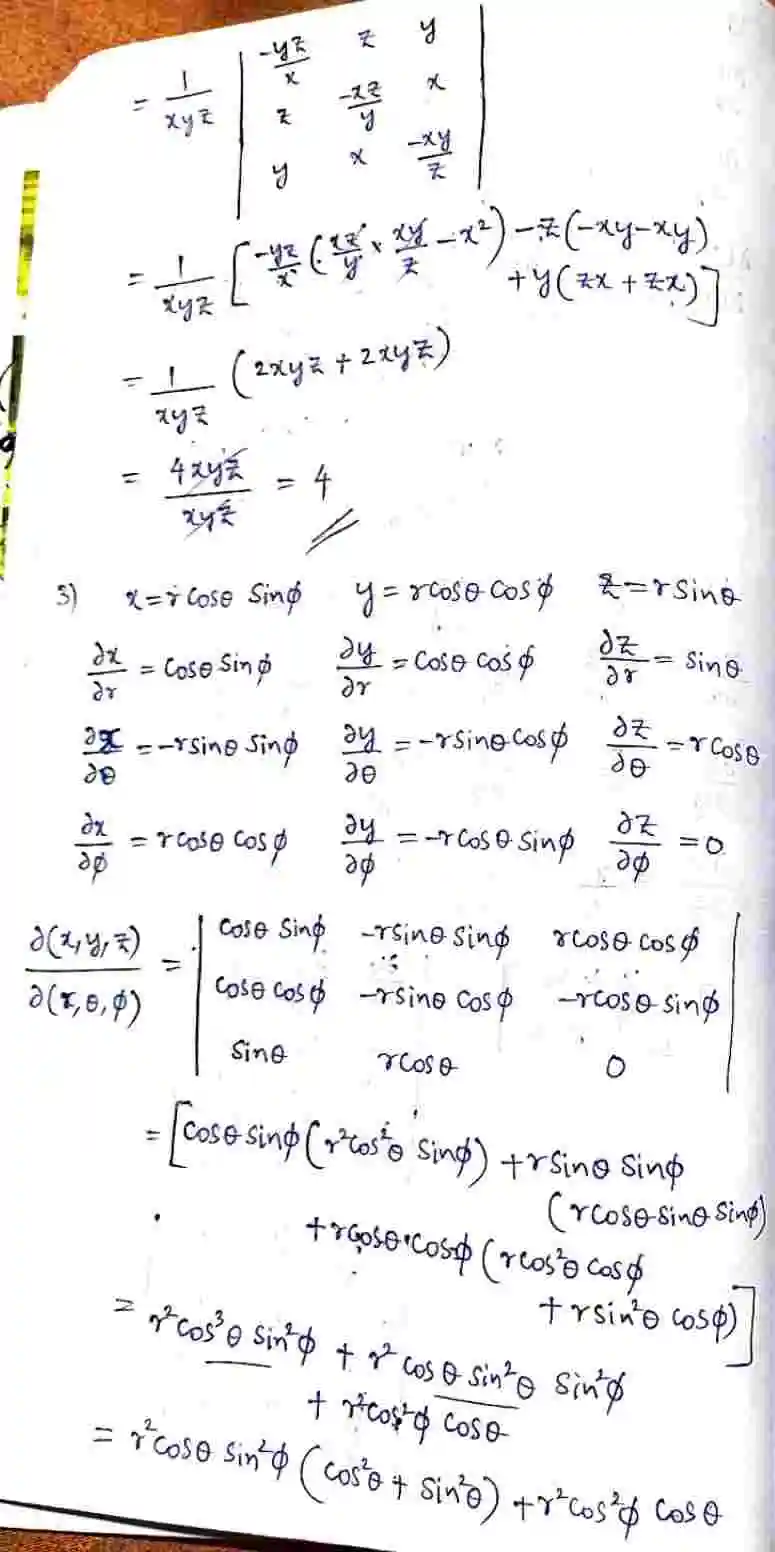 = 1/xyz | -yz/x z y |
| z -xz/y x |
| y x -xy/z |
= 1/xyz [ -yz/x ( xz/y × xy/z - x²) - z(-xy-xy)
+ y(zx + zx) ]
= 1/xyz (2xyz + 2xyz)
= 4xyz/xyz = 4
3) x = r cosθ sinϕ y = r cosθ cosϕ z = r sinθ
∂x/∂r = cosθ sinϕ ∂y/∂r = cosθ cosϕ ∂z/∂r = sinθ
∂x/∂θ = -r sinθ sinϕ ∂y/∂θ = -r sinθ cosϕ ∂z/∂θ = r cosθ
∂x/∂ϕ = r cosθ cosϕ ∂y/∂ϕ = -r cosθ sinϕ ∂z/∂ϕ = 0
∂(x,y,z)/∂(r,θ,ϕ) = | cosθ sinϕ -r sinθ sinϕ r cosθ cosϕ |
| cosθ cosϕ -r sinθ cosϕ -r cosθ sinϕ |
| sinθ r cosθ 0 |
= [ cosθ sinϕ (r² cos²θ sinϕ) + r sinθ sinϕ
(r cosθ sinθ sinϕ)
+ r cosθ cosϕ (r cos²θ cosϕ
+ r sin²θ cosϕ) ]
= r² cos³θ sin²ϕ + r² cosθ sin²θ sin²ϕ
+ r² cos²ϕ cosθ
= r² cosθ sin²ϕ (cos²θ + sin²θ) + r² cos²ϕ cosθ